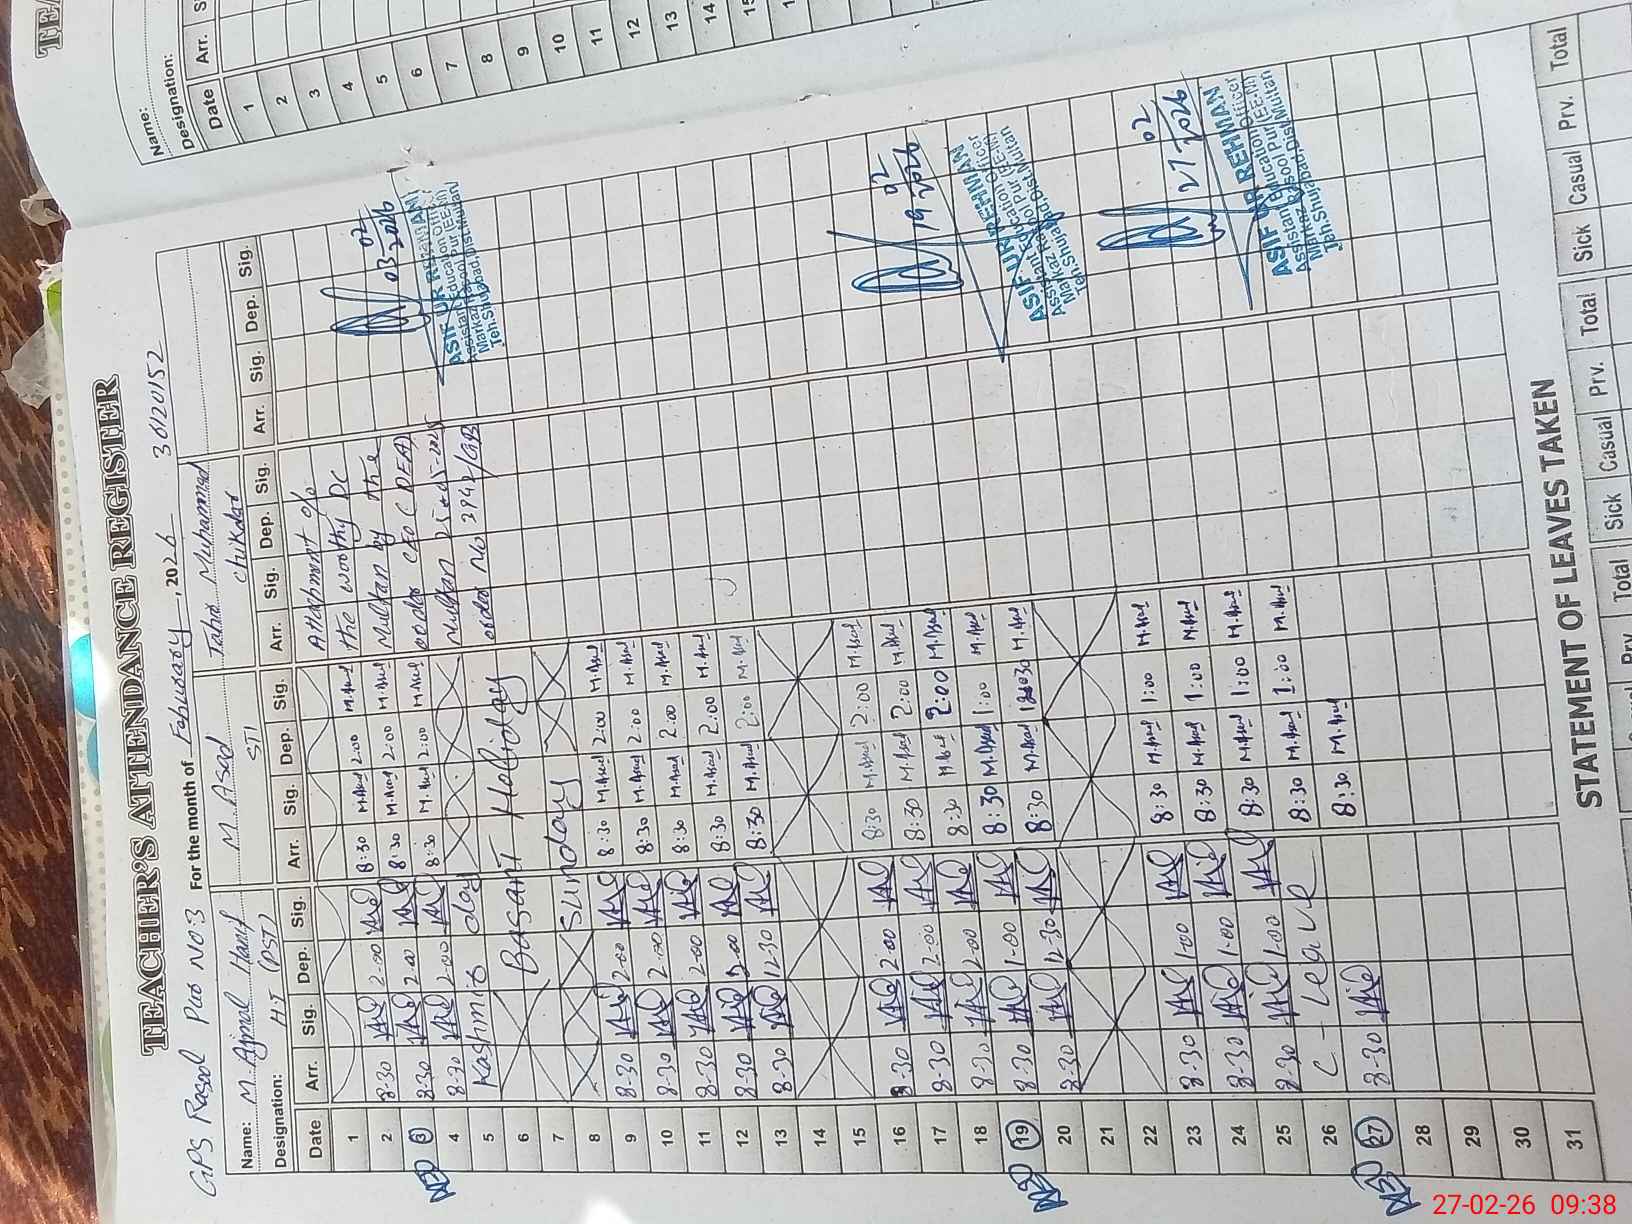 TEACHER'S ATTENDANCE REGISTER
GPS Rasool Pur No 3 For the month of Februaary, 2026 36120152
Name: M. Ajmal Hanif M. Asad Tahir Muhammad
Designation: H.T (PST) STI chikdar
Date Arr. Sig. Dep. Sig. Arr. Sig. Dep. Sig. Arr. Sig. Dep. Sig. Arr. Sig. Dep. Sig.
1 Attachment o/o
2 8-30 2-00 8:30 M.Asad 2:00 M.Asad the woorthy DC
3 8-30 2-00 8:30 M.Asad 2:00 M.Asad Multan by the
4 8-30 2-00 8:30 M.Asad 2:00 M.Asad oorder CEO (DEA)
5 Kashmir day Multan
6 Basant Holiday order No 3942/GB
7
8 Sunday
9 8-30 2-00 8:30 M.Asad 2:00 M.Asad
10 8-30 2-00 8:30 M.Asad 2:00 M.Asad
11 8-30 2-00 8:30 M.Asad 2:00 M.Asad
12 8-30 2-00 8:30 M.Asad 2:00 M.Asad
13 8-30 12-30 8:30 M.Asad 2:00 M.Asad
14
15
16 8-30 2-00 8:30 M.Asad 2:00 M.Asad
17 8-30 2-00 8:30 M.Asad 2:00 M.Asad
18 8-30 2-00 8:30 M.Asad 2:00 M.Asad
19 8-30 1-00 8:30 M.Asad 1:00 M.Asad
20 8-30 12-30 8:30 M.Asad M.Asad
21
22
23 8-30 1-00 8:30 M.Asad 1:00 M.Asad
24 8-30 1-00 8:30 M.Asad 1:00 M.Asad
25 8-30 1-00 8:30 M.Asad 1:00 M.Asad
26 C - Leave 8:30 M.Asad 1:00 M.Asad
27 8-30 8:30 M.Asad
28
29
30
31
03 02 2026
ASIF UR REHMAN
Assistant Education Officer
Markaz Rasool Pur (EE-M)
Teh.Shujabad,Distt.Multan
19 02 2026
ASIF UR REHMAN
Assistant Education Officer
Markaz Rasool Pur (EE-M)
Teh.Shujabad,Distt.Multan
27 02 2026
ASIF UR REHMAN
Assistant Education Officer
Markaz Rasool Pur (EE-M)
Teh.Shujabad,Distt.Multan
STATEMENT OF LEAVES TAKEN
Prv. Total Sick Casual Prv. Total Sick Casual Prv. Total
Name:
Designation:
Date Arr.
1
2
3
4
5
6
7
8
9
10
11
12
13
14
27-02-26 09:38